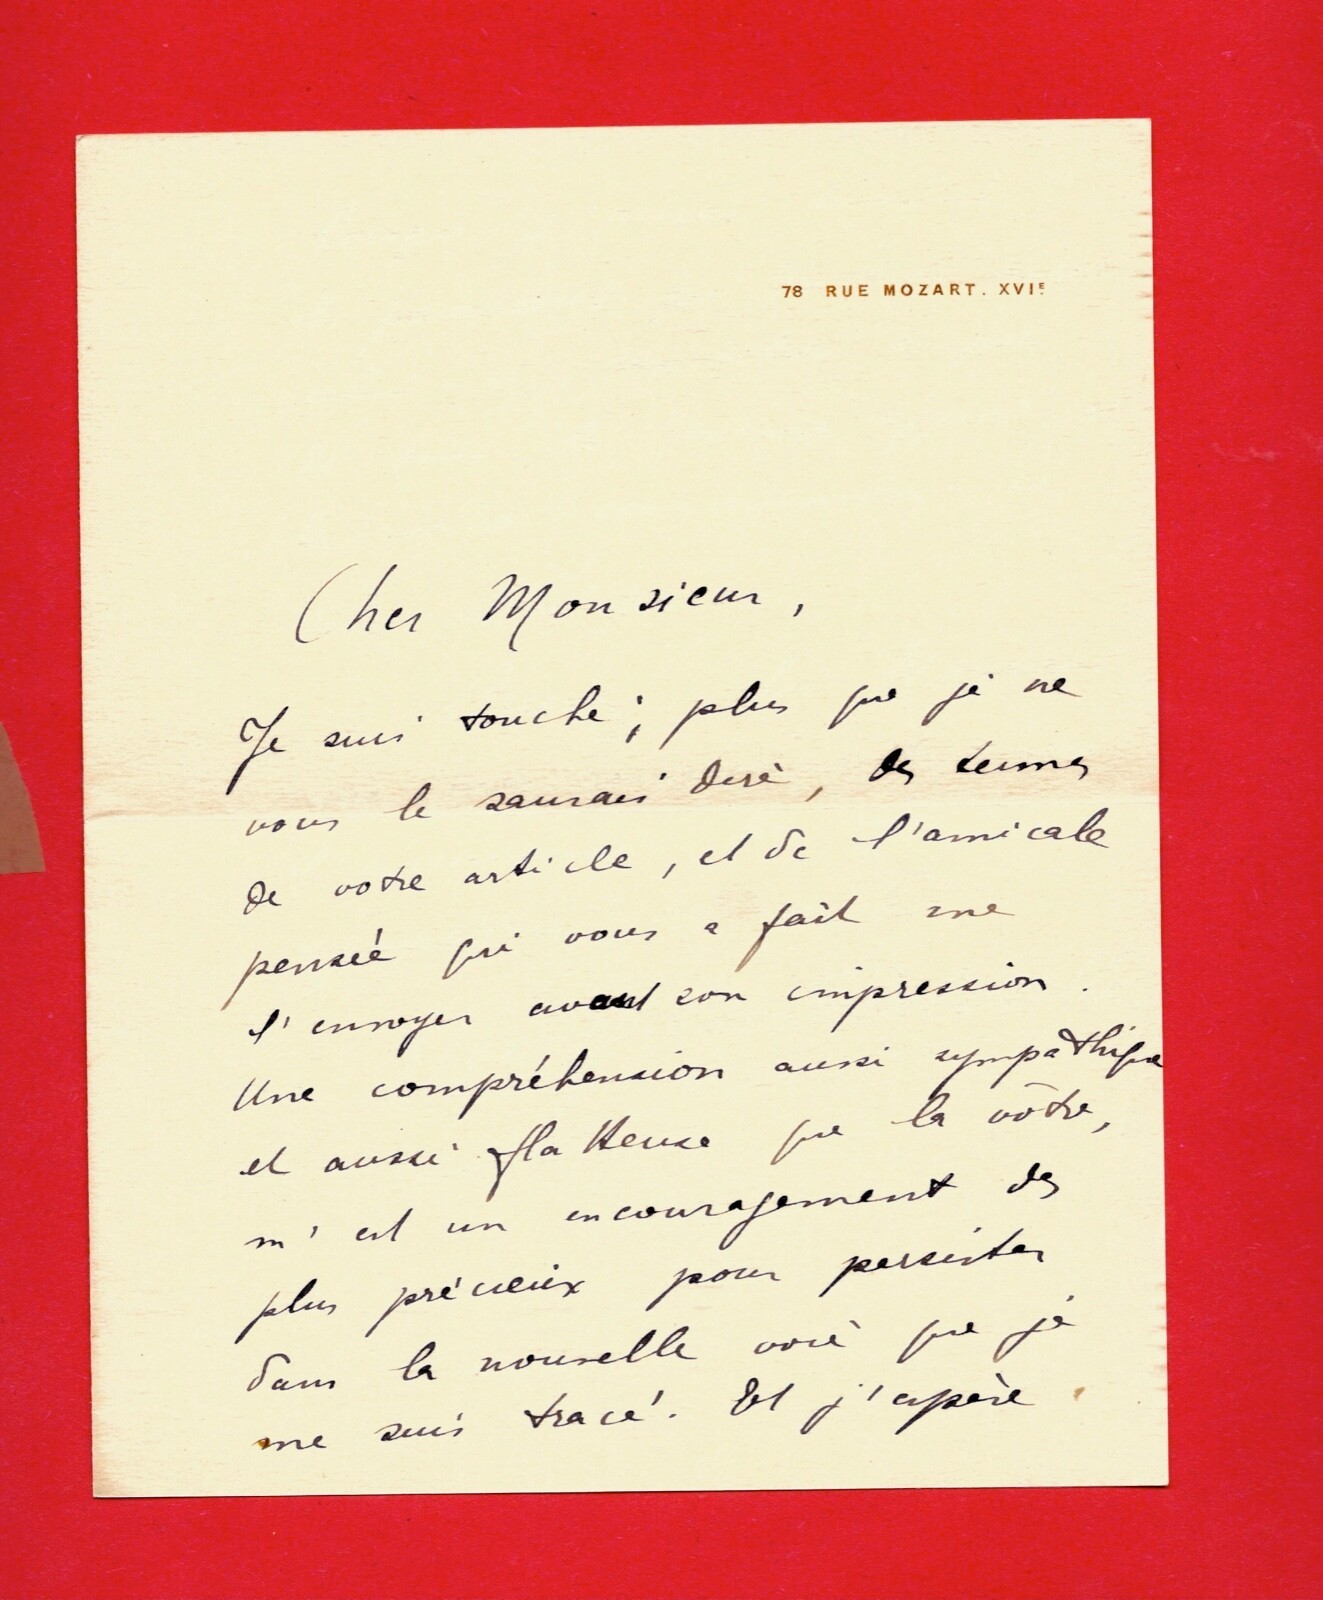 78 RUE MOZART. XVIE.
Cher Monsieur,
Je suis touché, plus que je ne
vous le saurais dire, des termes
de votre article, et de l'amicale
pensée qui vous a fait me
l'envoyer avant son impression.
Une compréhension aussi sympathique
et aussi flatteuse que la vôtre,
m'est un encouragement des
plus précieux pour persister
dans la nouvelle voie que je
me suis tracé. Et j'espère